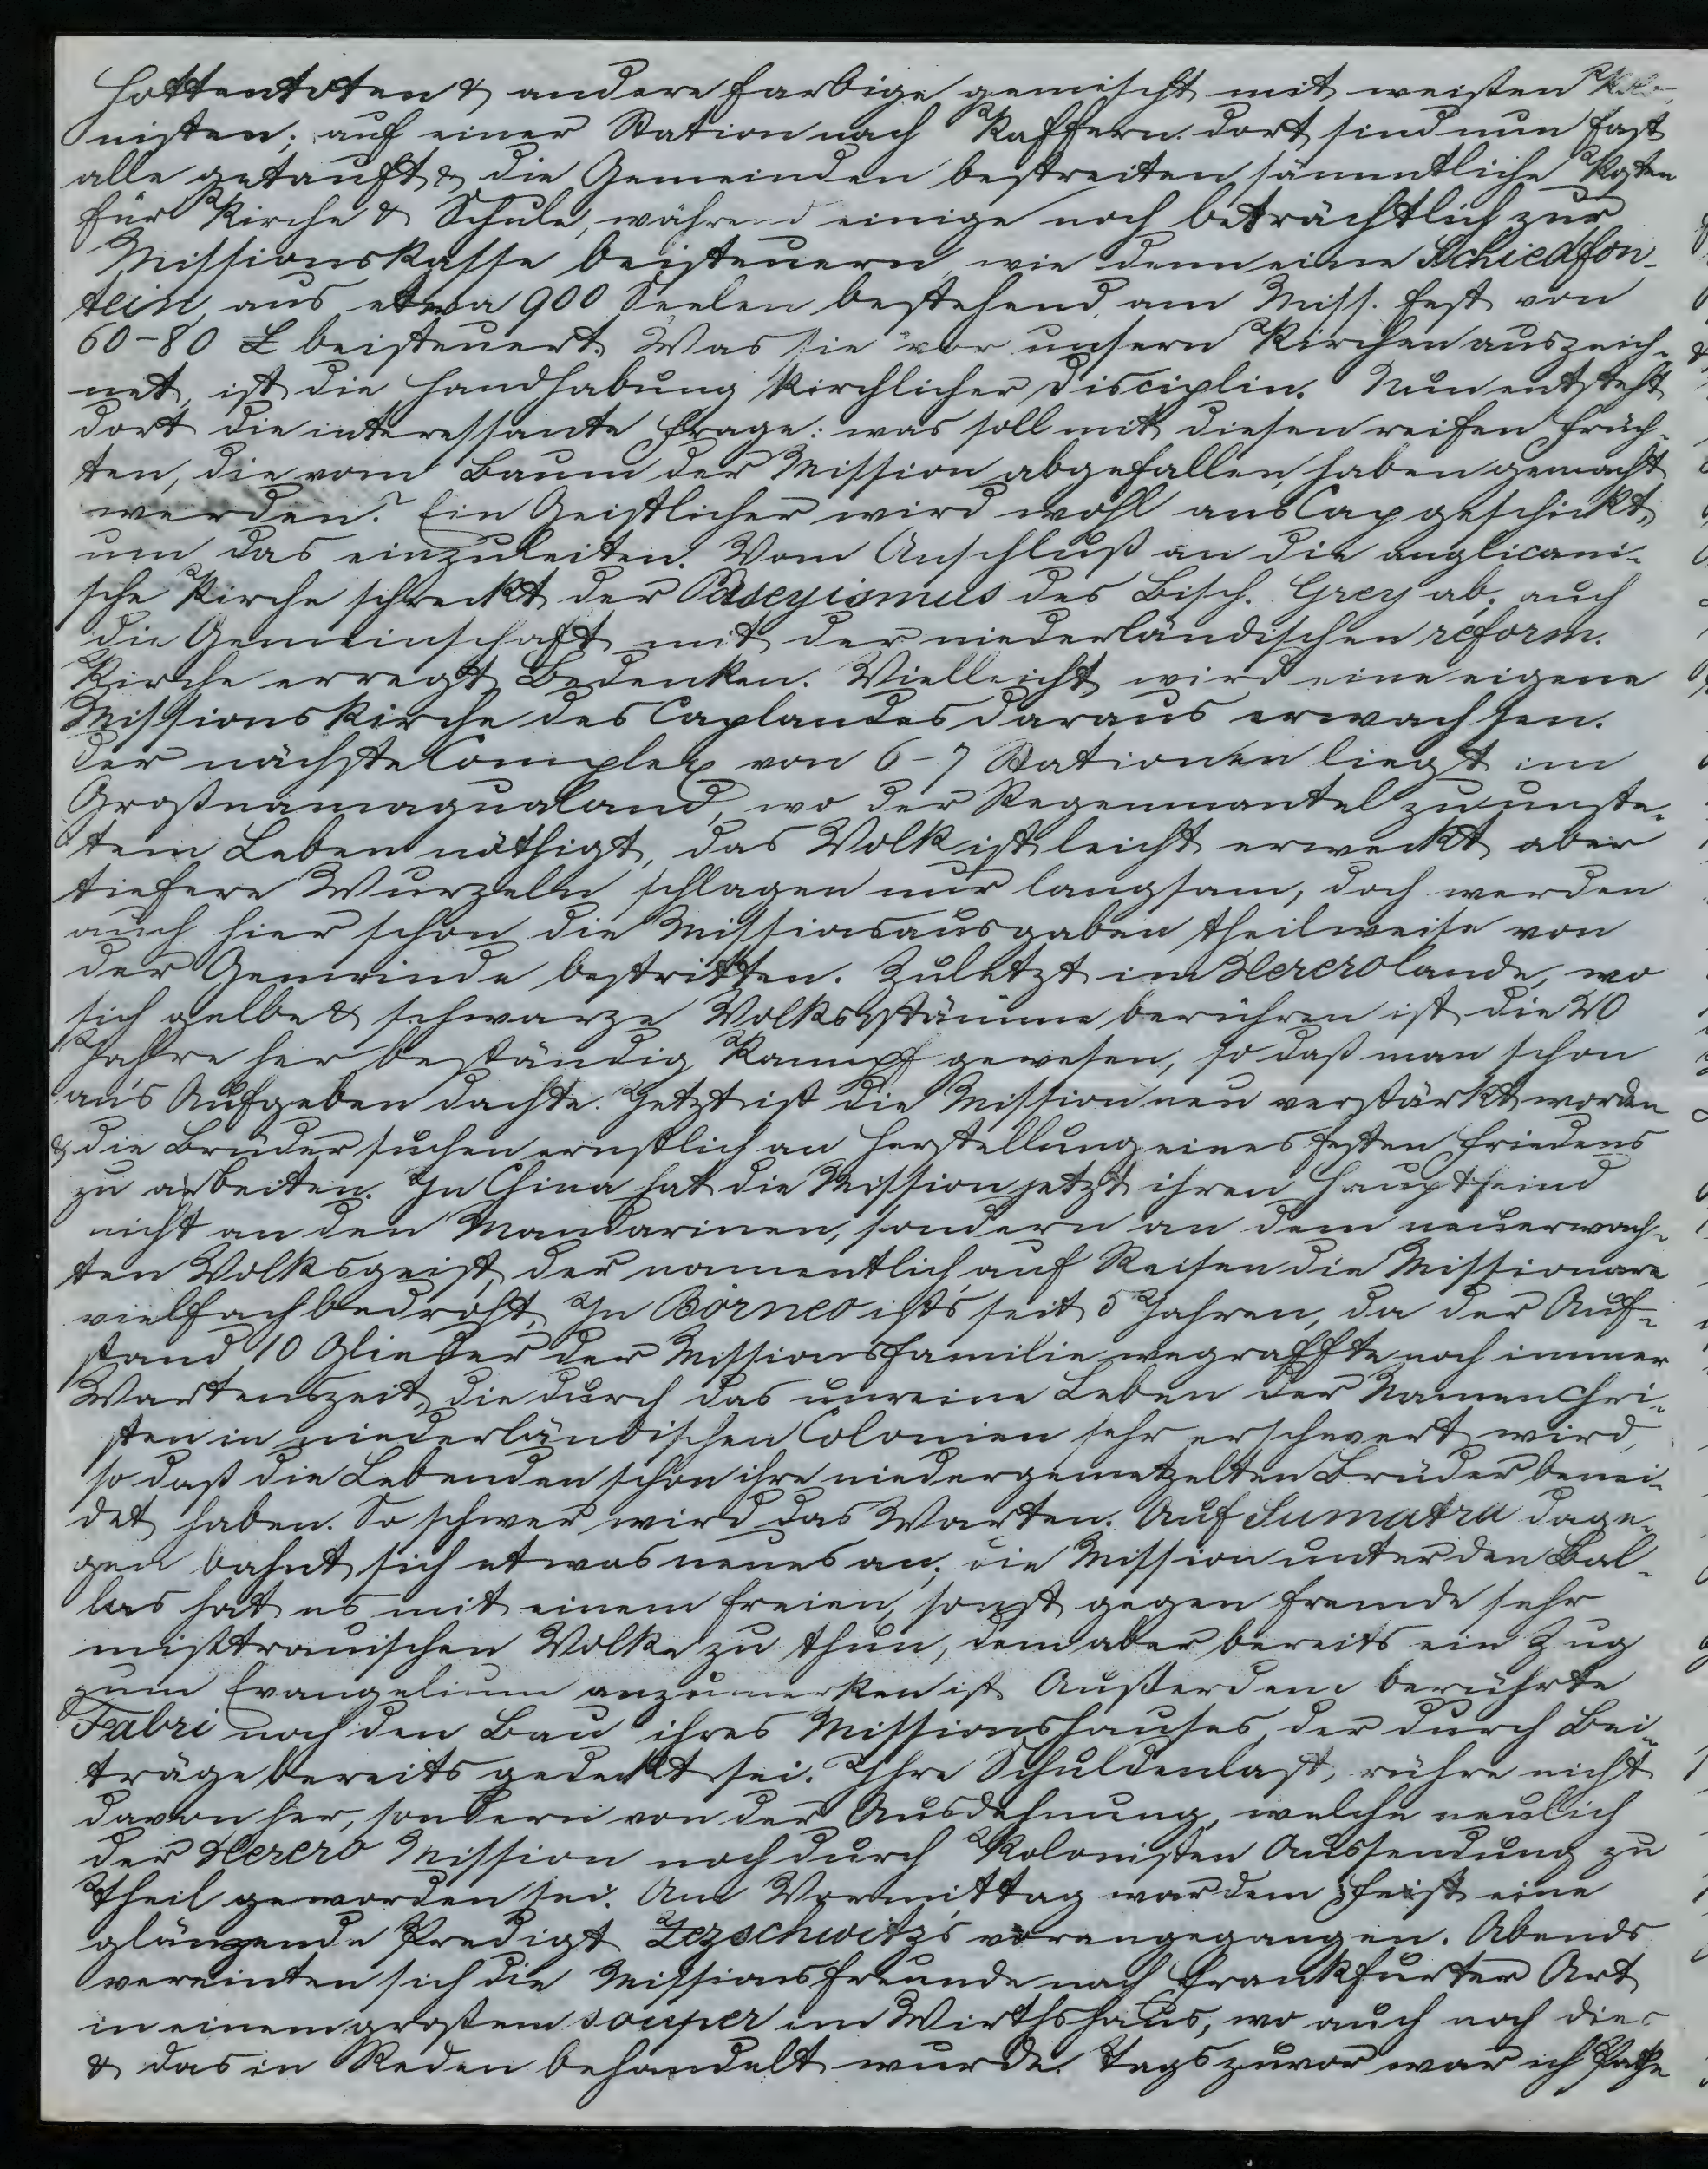 Hottentoten & andere farbige gemischt mit weisten Kolo-
nisten; auf einer Station nach Kaffern. dort sind nun fast
alle getauft & die Gemeinden bestreiten sämmtliche Kosten
für Kirche & Schule, während einige noch beträchtlich zur
Missionskasse beisteuern, wie denn eine Schiedfon-
tein aus etwa 900 Seelen bestehend am Miss. fest von
60-80 £ beisteuert. Was sie vor unsern Kirchen auszeich-
net, ist die Handhabung kirchlicher Disciplin. Nun entsteht
dort die interessante Frage: was soll mit diesen reifen Früch-
ten, die vom Baum der Mission abgefallen, haben gemacht
werden? Ein Geistlicher wird wohl ans Cap geschickt,
um das einzuleiten. Vom Anschluß an die anglicani-
sche Kirche schreckt der Puseyismus des Bisch. Grey ab; auch
die Gemeinschaft mit der niederländischen reform.
Kirche erregt Bedenken. Vielleicht wird eine eigene
Missionskirche des Caplandes daraus erwachsen.
Der nächste Complex von 6-7 Stationen liegt im
Großnamaqualand, wo der Regenmantel zu unste-
tem Leben nöthigt, das Volk ist leicht erweckt aber
tiefere Wurzeln schlagen nur langsam, doch werden
auch hier schon die Missionsausgaben theilweise von
der Gemeinde bestritten. Zuletzt im Hererolande, wo
sich gelbe & schwarze Volksstämme berühren ist die 20
Jahre her beständig Kampf gewesen, so daß man schon
an's Aufgeben dachte. Jetzt ist die Mission neu verstärkt worden
& die Brüder suchen ernstlich an Herstellung eines festen Friedens
zu arbeiten. In China hat die Mission jetzt ihren Hauptfeind
nicht an den Mandarinen, sondern an dem neuerwach-
ten Volksgeist, der namentlich auf Reisen die Missionare
vielfach bedroht. In Borneo ists seit 5 Jahren, da der Auf-
stand 10 Glieder der Missionsfamilie wegraffte noch immer
Wartenszeit, die durch das unreine Leben der Namenchri-
sten in niederländischen Colonien sehr erschwert wird,
so daß die Lebenden schon ihre niedergemetzelten Brüder benei-
det haben. So schwer wird das Warten. Auf Sumatra dage-
gen bahnt sich etwas neues an; die Mission unter den Bat-
las hat es mit einem freien, sonst gegen Fremde sehr
mißtrauischen Volke zu thun, dem aber bereits ein Zug
zum Evangelium anzumerken ist. Außerdem berührte
Fabri noch den Bau ihres Missionshauses, der durch Bei-
träge bereits gedeckt sei. Ihre Schuldenlast, rühre nicht
davon her, sondern von der Ausdehnung, welche neulich
der Herero Mission noch durch Kolonisten Aussendung zu
Theil geworden sei. Am Vormittag war dem Fest eine
glänzende Predigt Zezschwitz's vorangegangen. Abends
vereinten sich die Missionsfreunde nach Frankfurter Art
in einem großem souper im Wirthshaus, wo auch noch dies
& das in Reden behandelt wurde. Tags zuvor war ich Pathe